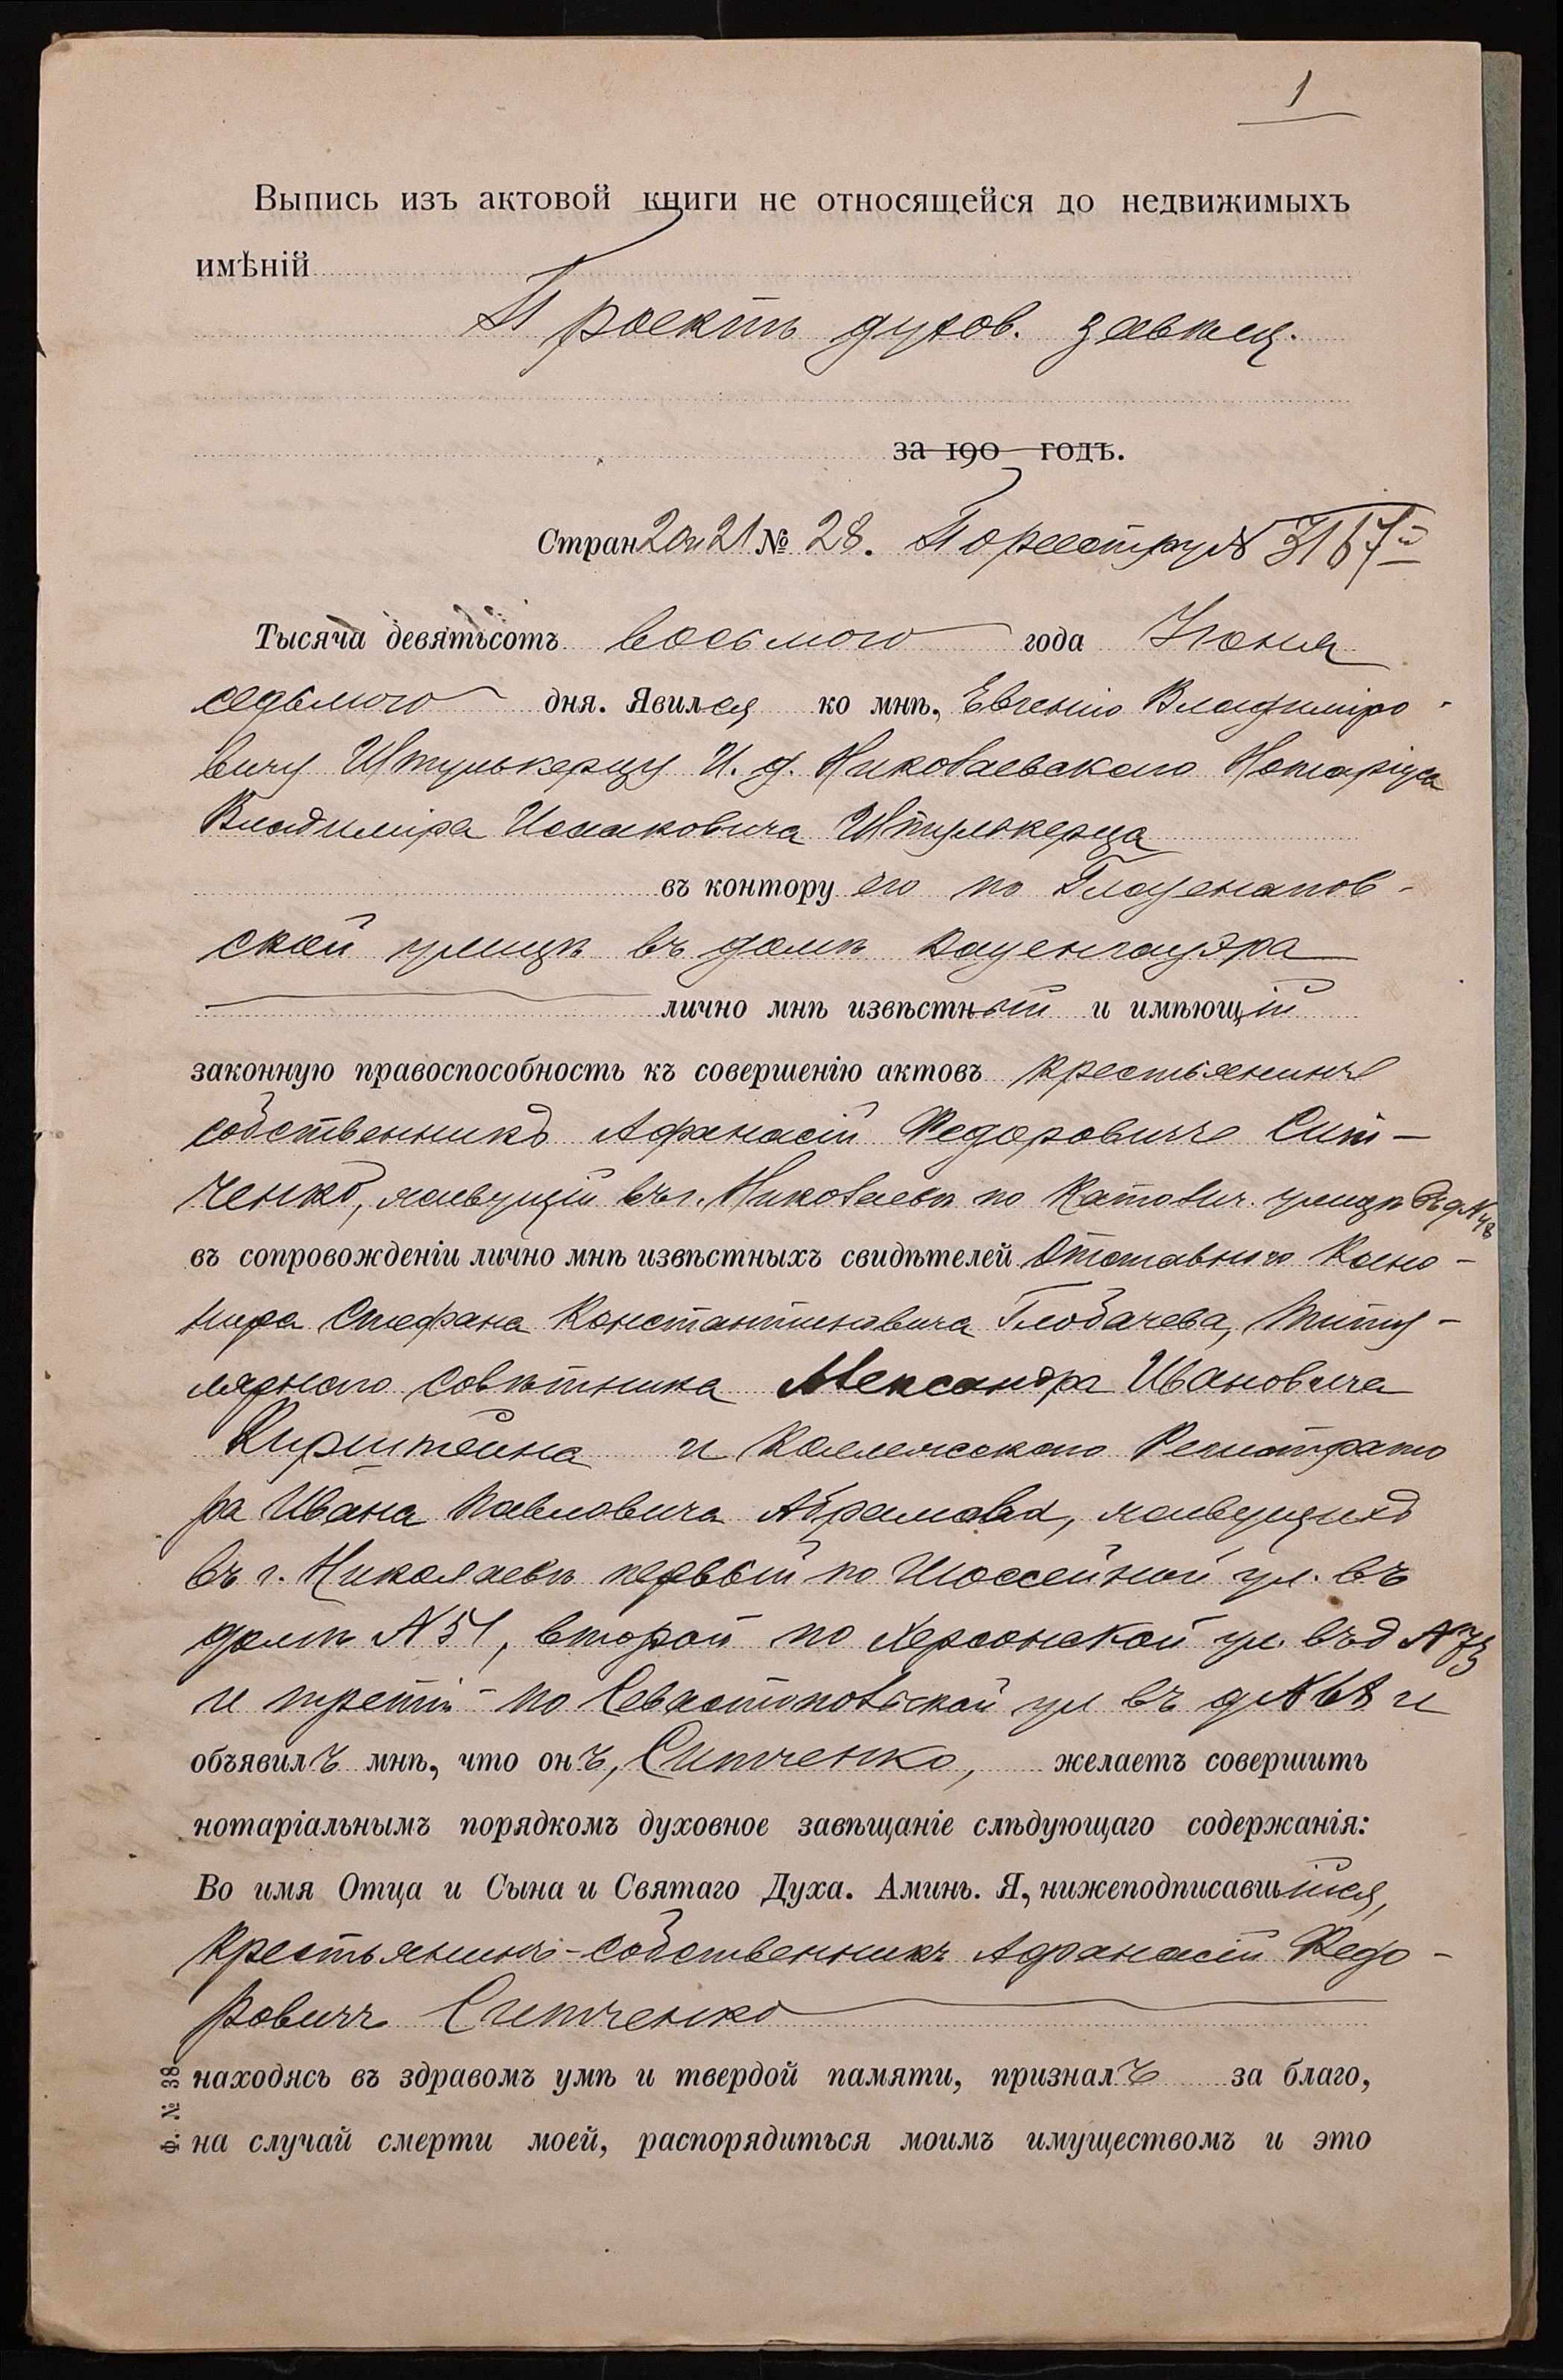 1
Выпись изъ актовой книги не относящейся до недвижимыхъ
имѣній
Проектъ духов. завѣщ.
за 190 годъ.
Стран 20 и 21 № 28. По реестру № 3167
Тысяча девятьсотъ восьмого года Іюня
седьмого дня. Явился ко мнѣ, Евгенію Владиміро-
вичу Штулькерцу И. д. Николаевскаго Нотаріуса
Владиміра Исааковича Штулькерца
въ контору его по Глазенапов-
ской улицѣ въ домѣ Каценгауэра
лично мнѣ извѣстный и имѣющій
законную правоспособность къ совершенію актовъ крестьянинъ
собственникъ Афанасій Федоровичъ Сит-
ченко, живущій въ г. Николаевѣ по Католич. улицѣ въ д №
въ сопровожденіи лично мнѣ извѣстныхъ свидѣтелей Отставнаго Кано-
нира Стефана Константиновича Глобачева, Титу-
лярнаго Совѣтника Александра Ивановича
Кирштейна и Коллежскаго Регистрато
ра Ивана Павловича Абрамова, живущихъ
въ г. Николаевѣ первый по Шоссейной ул. въ
домѣ № 51, второй по Херсонской ул. въ д № 73
и третій по Севастопольской ул въ д № и
объявилъ мнѣ, что онъ, Ситченко, желаетъ совершить
нотаріальнымъ порядкомъ духовное завѣщаніе слѣдующаго содержанія:
Во имя Отца и Сына и Святаго Духа. Аминь. Я, нижеподписавшійся,
Крестьянинъ-собственникъ Афанасій Федо-
ровичъ Ситченко
находясь въ здравомъ умѣ и твердой памяти, призналъ за благо,
на случай смерти моей, распорядиться моимъ имуществомъ и это
Ф. № 38